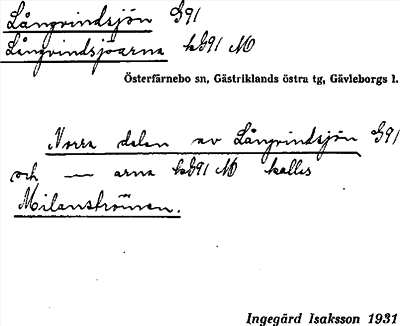 Långvindsjön G91
Långvindsjöarna kG91 M
Österfärnebo sn, Gästriklands östra tg, Gävleborgs l.
Norra delen av Långvindsjön G91
och — arna kG91 M kallas
Milanströmmen.
Ingegärd Isaksson 1931